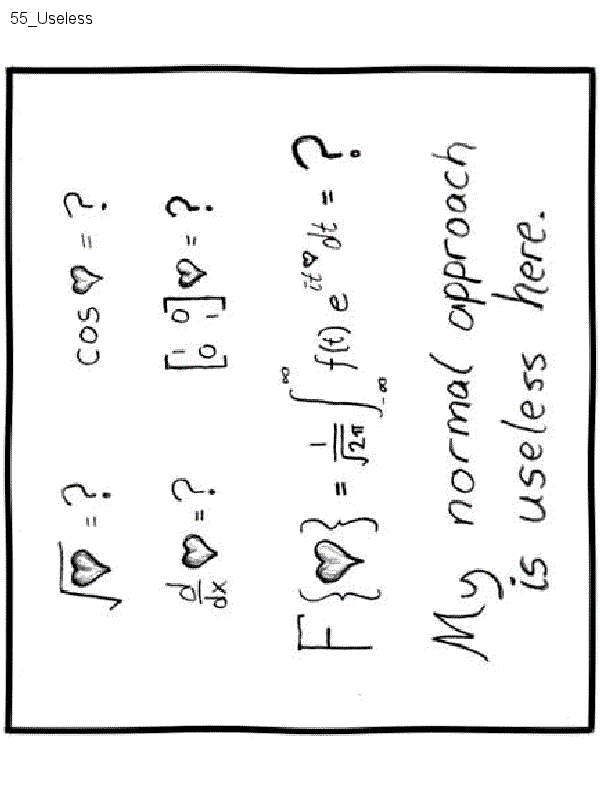 55_Useless
√♥ = ?
cos ♥ = ?
d/dx ♥ = ?
[1 0; 0 1] ♥ = ?
F{♥} = 1/√2π ∫_-∞^∞ f(t) e^it♥ dt = ?
My normal approach
is useless here.